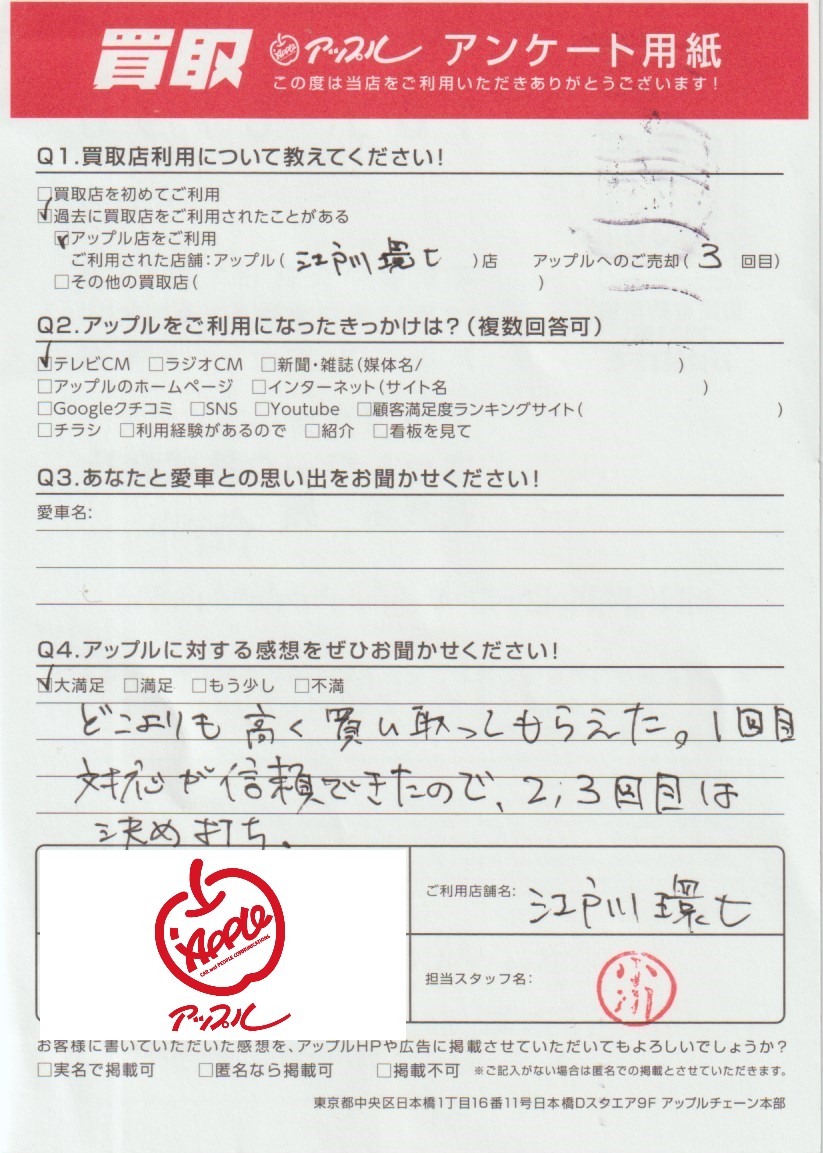 買取 アップル アンケート用紙
この度は当店をご利用いただきありがとうございます!
Q1.買取店利用について教えてください!
□買取店を初めてご利用
☑過去に買取店をご利用されたことがある
☑アップル店をご利用
ご利用された店舗:アップル( 江戸川環七 )店 アップルへのご売却( 3 回目)
□その他の買取店( )
Q2.アップルをご利用になったきっかけは?(複数回答可)
☑テレビCM □ラジオCM □新聞・雑誌(媒体名/ )
□アップルのホームページ □インターネット(サイト名 )
□Googleクチコミ □SNS □Youtube □顧客満足度ランキングサイト( )
□チラシ □利用経験があるので □紹介 □看板を見て
Q3.あなたと愛車との思い出をお聞かせください!
愛車名:
Q4.アップルに対する感想をぜひお聞かせください!
☑大満足 □満足 □もう少し □不満
どこよりも高く買い取ってもらえた。1回目
対応が信頼できたので、2,3回目は
決め打ち。
ご利用店舗名: 江戸川環七
Apple
CAR and PEOPLE COMMUNICATIONS
アップル
担当スタッフ名:
お客様に書いていただいた感想を、アップルHPや広告に掲載させていただいてもよろしいでしょうか?
□実名で掲載可 □匿名なら掲載可 □掲載不可 ※ご記入がない場合は匿名での掲載とさせていただきます。
東京都中央区日本橋1丁目16番11号日本橋Dスタエア9F アップルチェーン本部